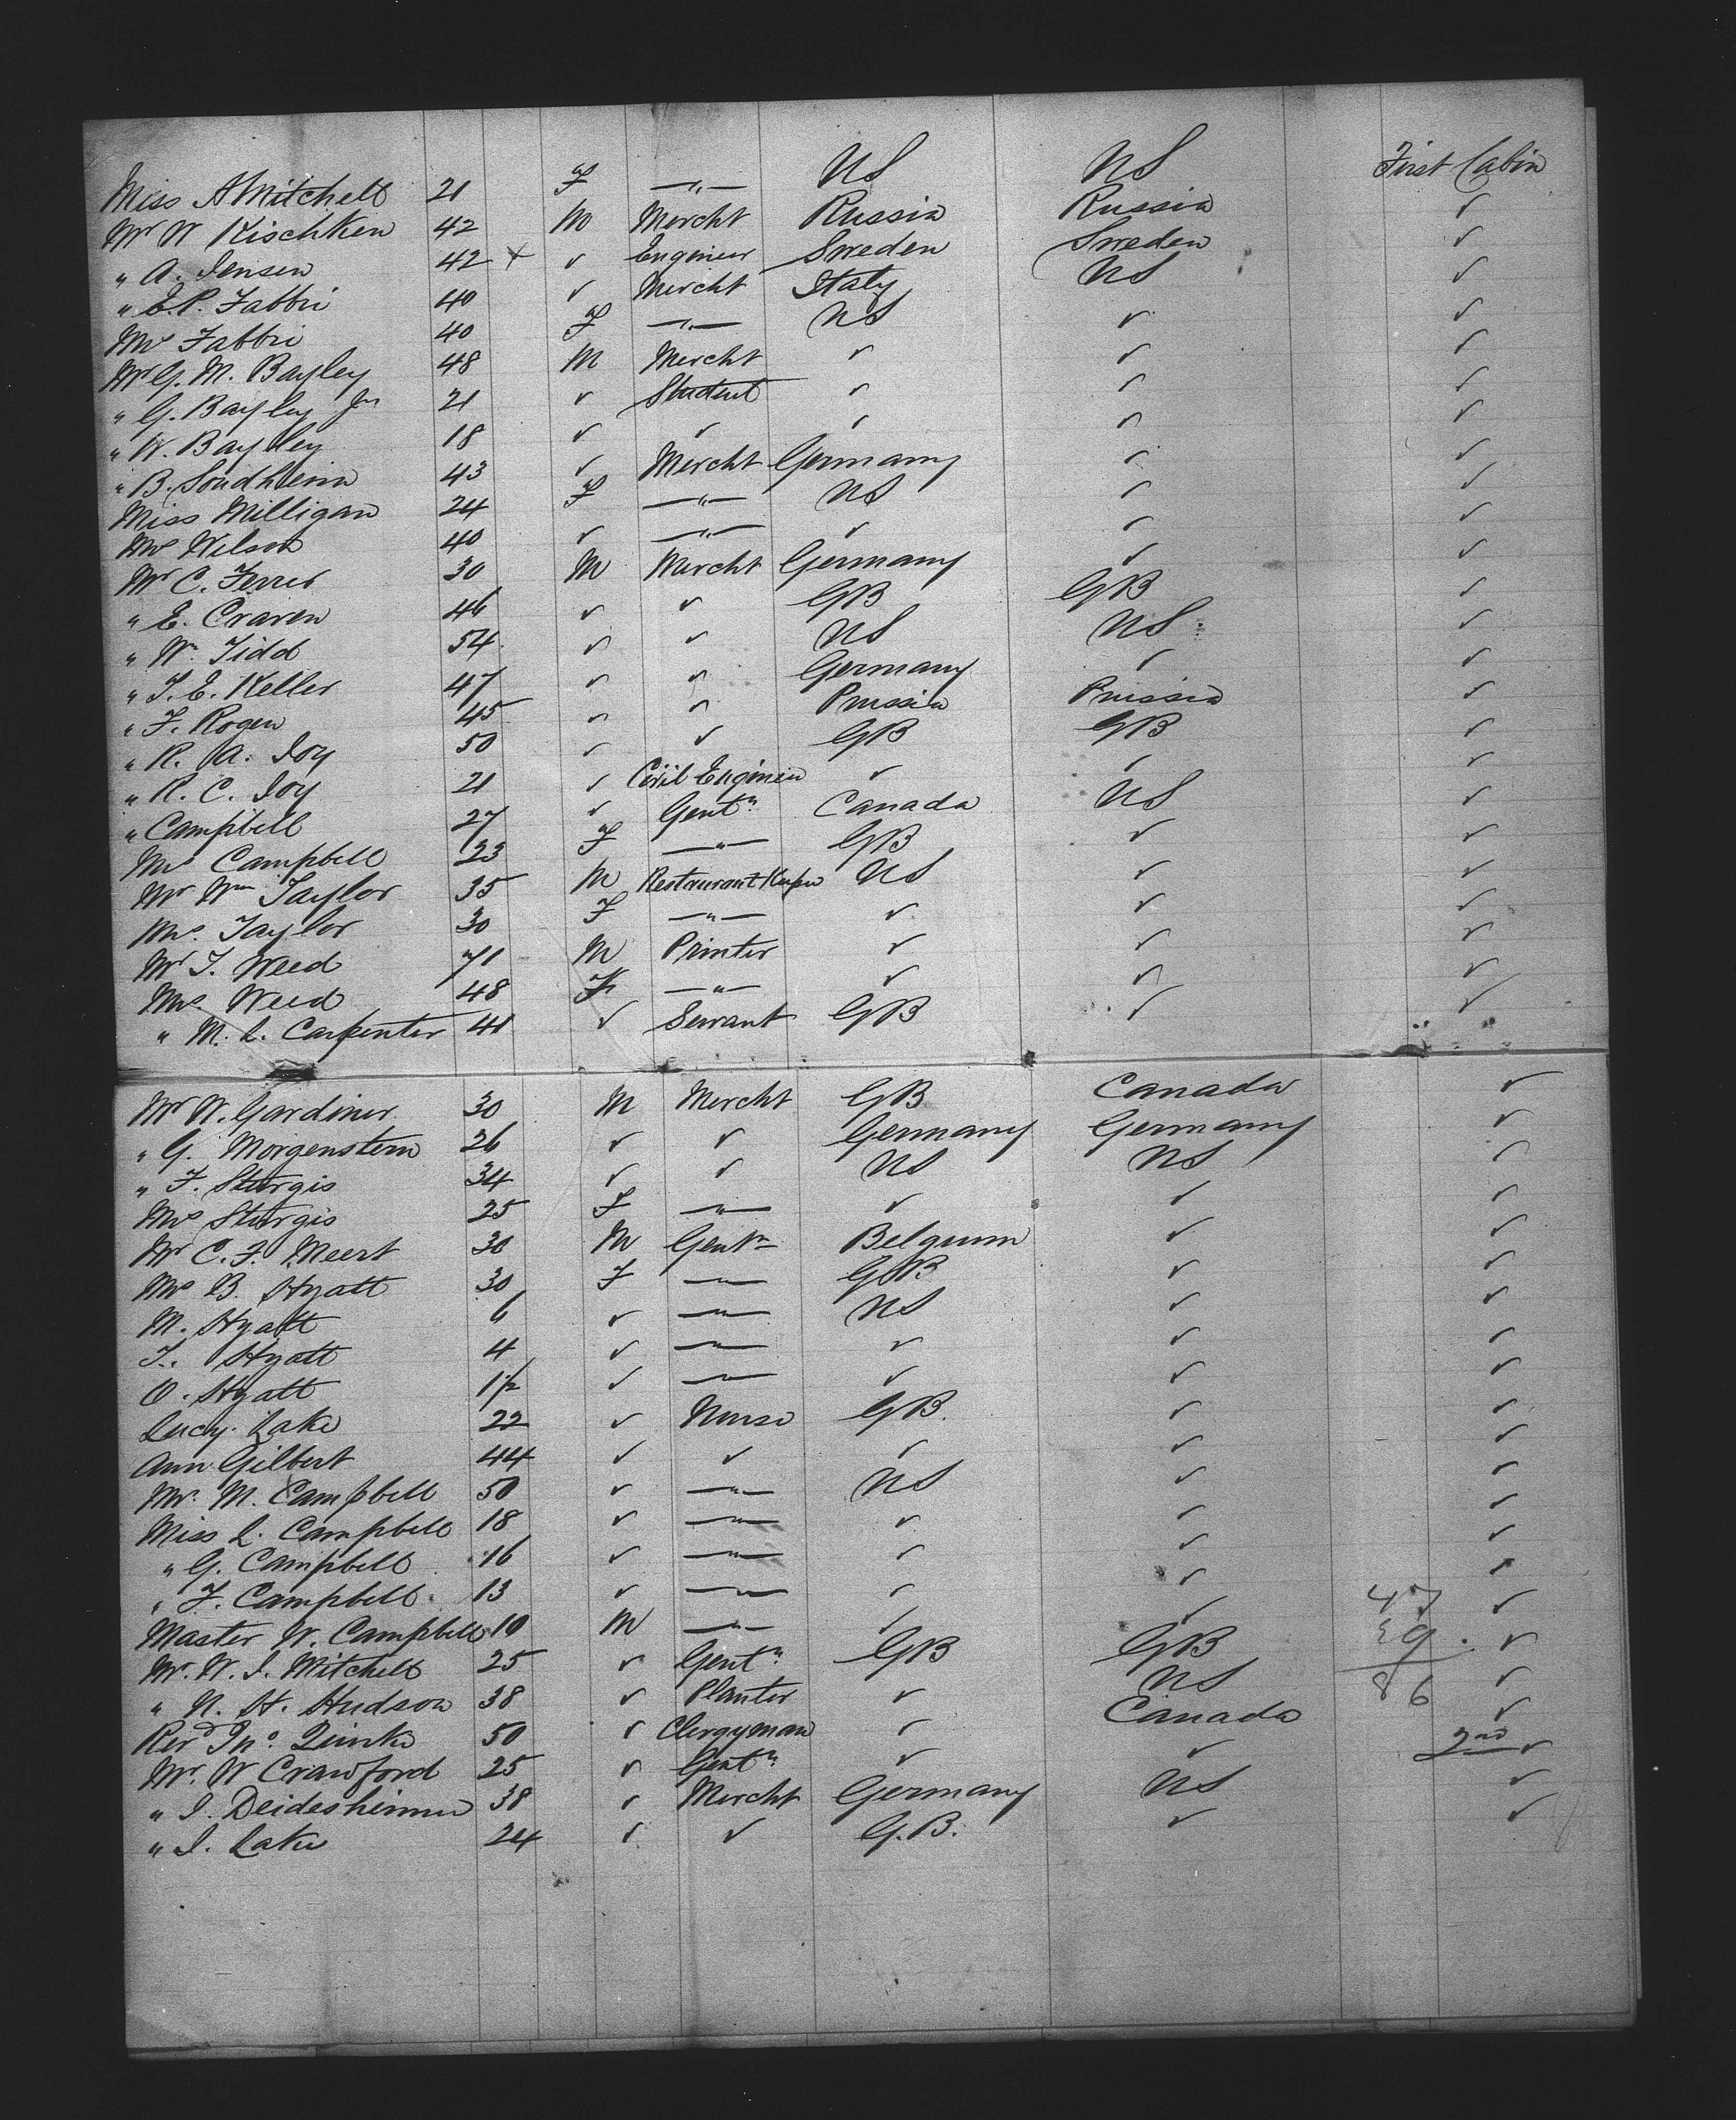 Miss A Mitchell 21 F —"— US US First Cabin
Mr W Kischken 42 M Mercht Russia Russia ✓
" A. Jensen 42 x ✓ Engineer Sweden Sweden ✓
" E. P. Fabbri 40 ✓ Mercht Italy US ✓
Mrs Fabbri 40 F —"— US ✓ ✓
Mr G. M. Bayley 48 M Mercht ✓ ✓ ✓
" G. Bayley Jnr 21 ✓ Student ✓ ✓ ✓
" W. Bayley 18 ✓ ✓ ✓ ✓ ✓
" B. Soudheim 43 ✓ Mercht Germany ✓ ✓
Miss Milligan 24 F —"— US ✓ ✓
Mrs Wilson 40 ✓ —"— ✓ ✓ ✓
Mr C. 30 M Mercht Germany ✓ ✓
" E. Craven 46 ✓ ✓ GB GB ✓
" Wm Tidd 54 ✓ ✓ US US ✓
" T. E. Keller 47 ✓ ✓ Germany ✓ ✓
" F. Rogen 45 ✓ ✓ Prussia Prussia ✓
" R. A. Joy 50 ✓ ✓ GB GB ✓
" R. C. Joy 21 ✓ Civil Engineer ✓ ✓ ✓
" Campbell 27 ✓ Gentn Canada US ✓
Mrs Campbell 23 F —"— GB ✓ ✓
Mr Wm Taylor 35 M Restaurant Keeper US ✓ ✓
Mrs. Taylor 30 F —"— ✓ ✓ ✓
Mr T. Weed 71 M Printer ✓ ✓ ✓
Mrs Weed 48 F —"— ✓ ✓ ✓
" M. L. Carpenter 41 ✓ Servant GB ✓ ✓
Mr W. Gardiner 30 M Mercht GB Canada ✓
" G. Morgenstern 26 ✓ ✓ Germany Germany ✓
" F. Sturgis 34 ✓ ✓ US US ✓
Mrs Sturgis 25 F —"— ✓ ✓ ✓
Mr C. F. Meert 30 M Gentn Belgium ✓ ✓
Mrs B. Hyatt 30 F —"— GB ✓ ✓
M. Hyatt 6 ✓ —"— US ✓ ✓
T. Hyatt 4 ✓ —"— ✓ ✓ ✓
O. Hyatt 1½ ✓ —"— ✓ ✓ ✓
Lucy Lake 22 ✓ Nurse GB. ✓ ✓
Ann Gilbert 44 ✓ ✓ ✓ ✓ ✓
Mrs. M. Campbell 50 ✓ —"— US ✓ ✓
Miss L. Campbell 18 ✓ —"— ✓ ✓ ✓
" G. Campbell 16 ✓ —"— ✓ ✓ ✓
" F. Campbell 13 ✓ —"— ✓ ✓ ✓
Master W. Campbell 10 M —"— ✓ ✓ 47 ✓
Mr. W. J. Mitchell 25 ✓ Gentn GB GB 39 ✓
" N. H. Hudson 38 ✓ Planter ✓ US 86 ✓
Revd Jno. 50 ✓ Clergyman ✓ Canada ✓
Mr. W Crawford 25 ✓ Gentn ✓ ✓ 2nd ✓
" J. Deidesheimer 38 ✓ Mercht Germany US ✓
" J. Lake 24 ✓ ✓ G.B. ✓ ✓